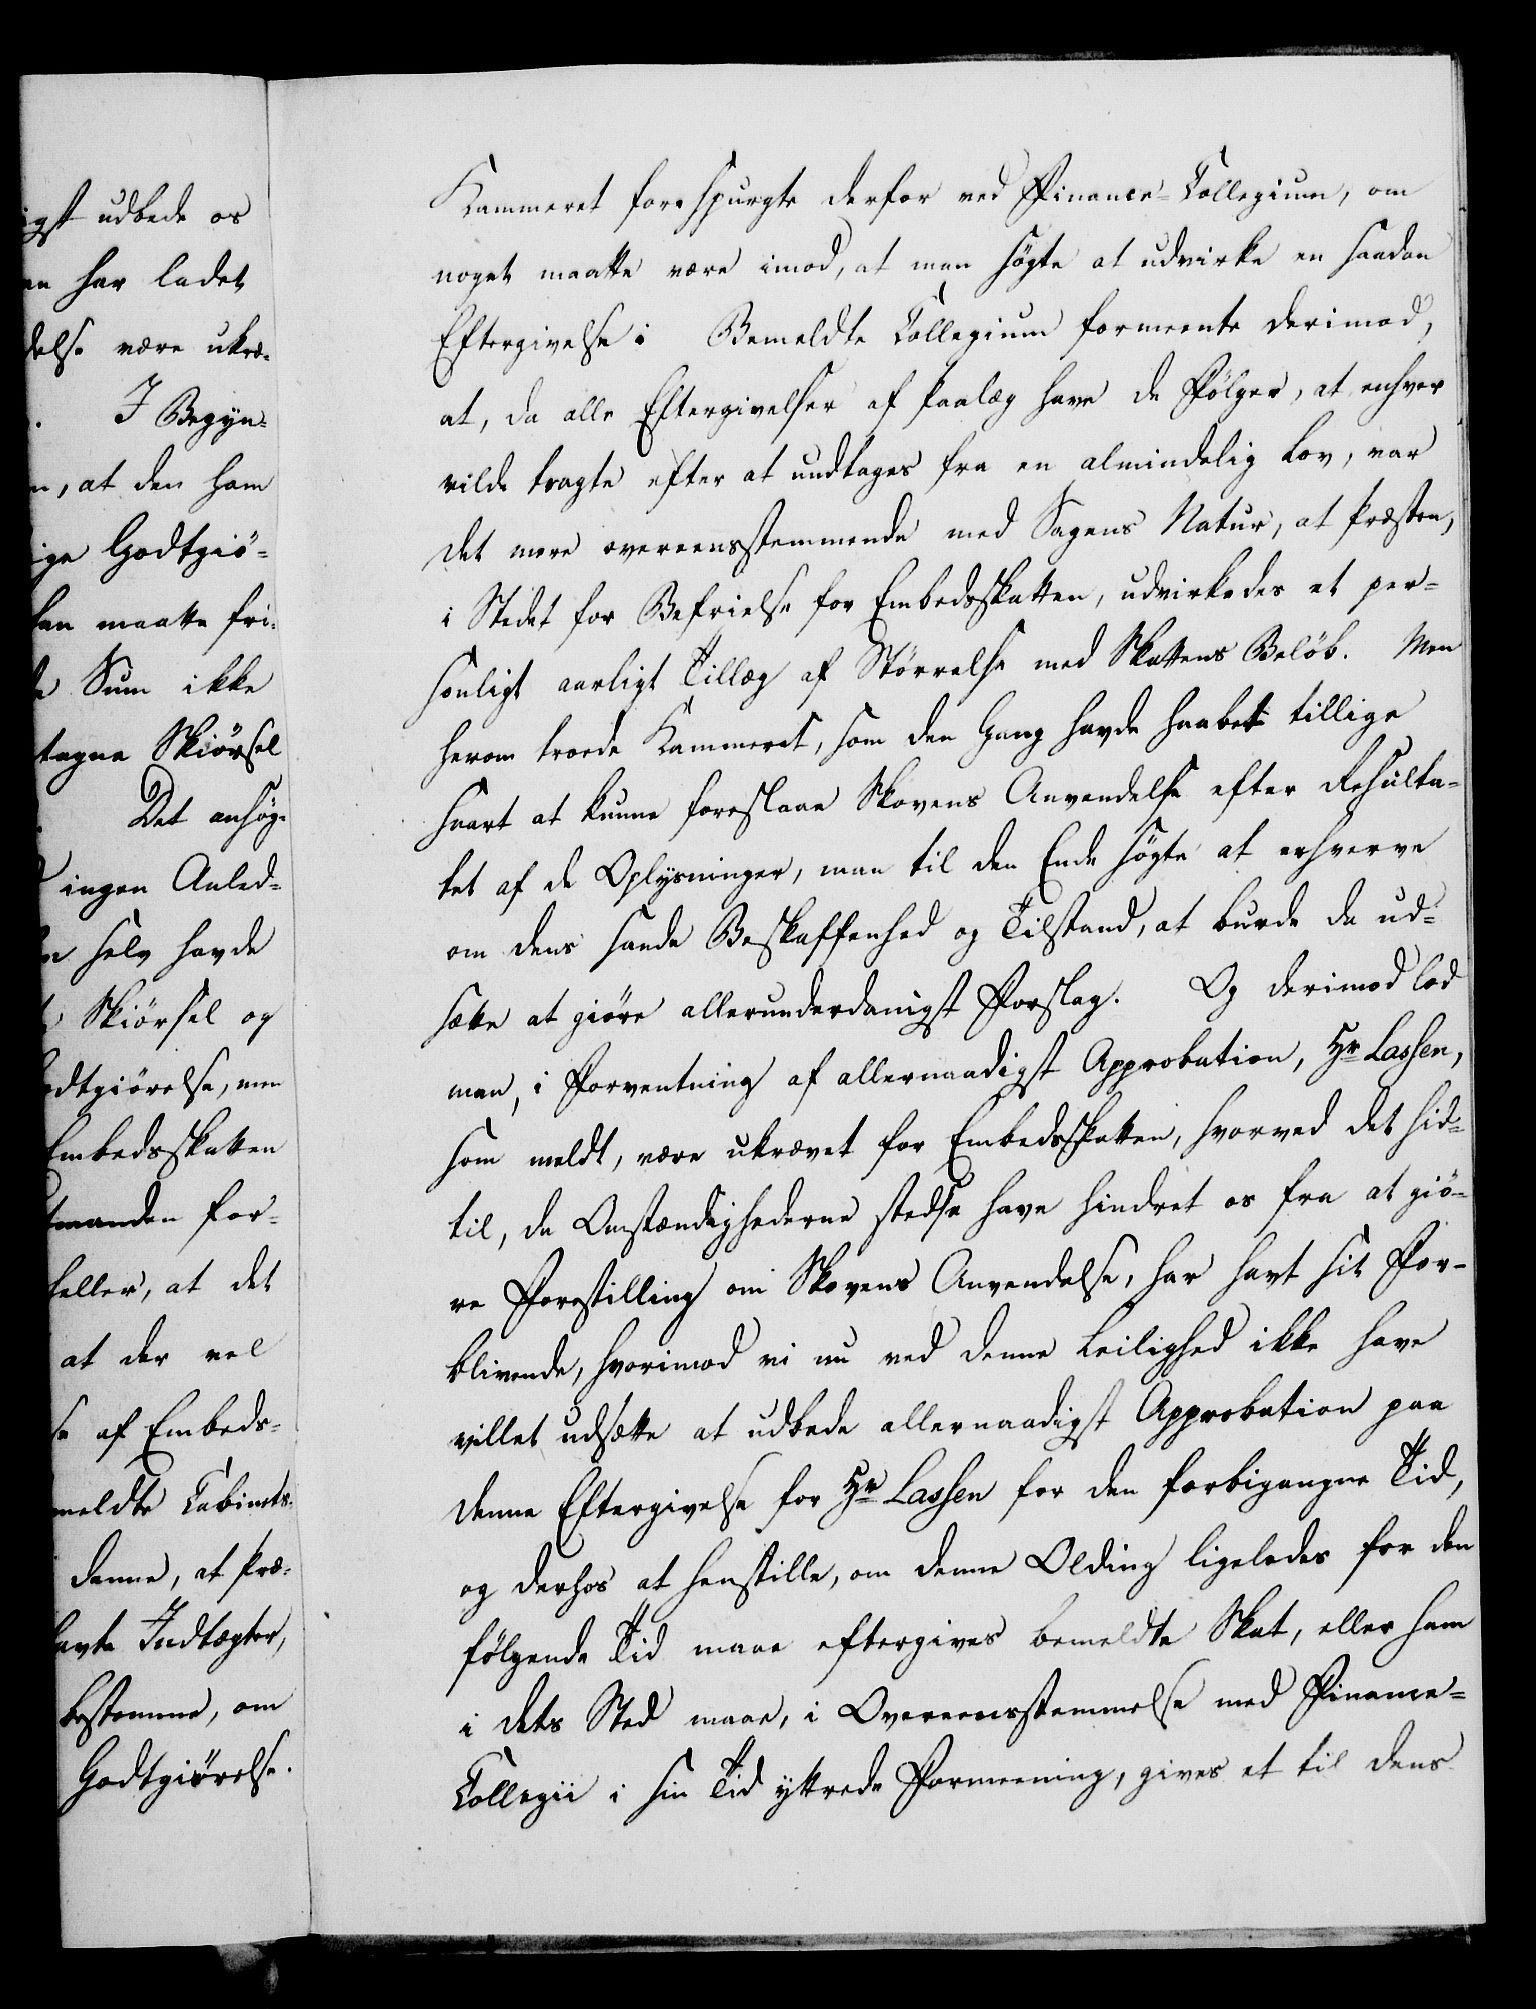 igst udbede os
an har ladet
delse være ukræ-
. I Begyn-
n, at den ham
ige Godtgiö-
kan maatte fri-
de Sum ikke
tagne Skiörsel
Det ansög-
ingen Anled-
selv havde
Skiörsel og
odtgiörelse, men
Embedsskatten
tmanden for-
heller, at det
at der vel
se af Embeds-
meldte Cabinets-
denne, at Præ-
havte Indtægter,
bestemme, om
Godtgiörelse.
Kammeret forespurgte derfor ved Finance-Collegium, om
noget maatte være imod, at man sögte at udvirke en saadan
Eftergivelse: Bemeldte Collegium formeente derimod,
at, da alle Eftergivelser af Paalæg have de Fölger, at enhver
vilde tragte efter at undtages fra en almindelig Lov, var
det mere overeensstemmende med Sagens Natur, at Præsten,
i Stedet for Befrielse for Embedsskatten, udvirkedes et per-
sonligt aarligt Tillæg af Störrelse med Skattens Belöb. Men
herom troede Kammeret, som den Gang havde haabet tillige
snart at kunne foreslaae Skovens Anvendelse efter Resulta-
tet af de Oplysninger, man til den Ende sögte at erhverve
om dens sande Beskaffenhed og Tilstand, at burde da ud-
sætte at giöre allerunderdanigst Forslag. Og derimod lod
man, i Forventning af allernaadigst Approbation, Hr Lassen,
som meldt, være ukrævet for Embedsskatten, hvorved det hid-
til, da Omstændighederne stedse have hindret os fra at giö-
re Forestilling om Skovens Anvendelse, har havt sit For-
blivende, hvorimod vi nu ved denne Leilighed ikke have
villet udsætte at udbede allernaadigst Approbation paa
denne Eftergivelse for Hr Lassen for den forbigangne Tid,
og derhos at henstille, om denne Olding ligeledes for den
fölgende Tid maae eftergives bemeldte Skat, eller ham
i dets Sted maae, i Overeensstemmelse med Finance-
Collegii i sin Tid yttrede Formeening, gives et til dens